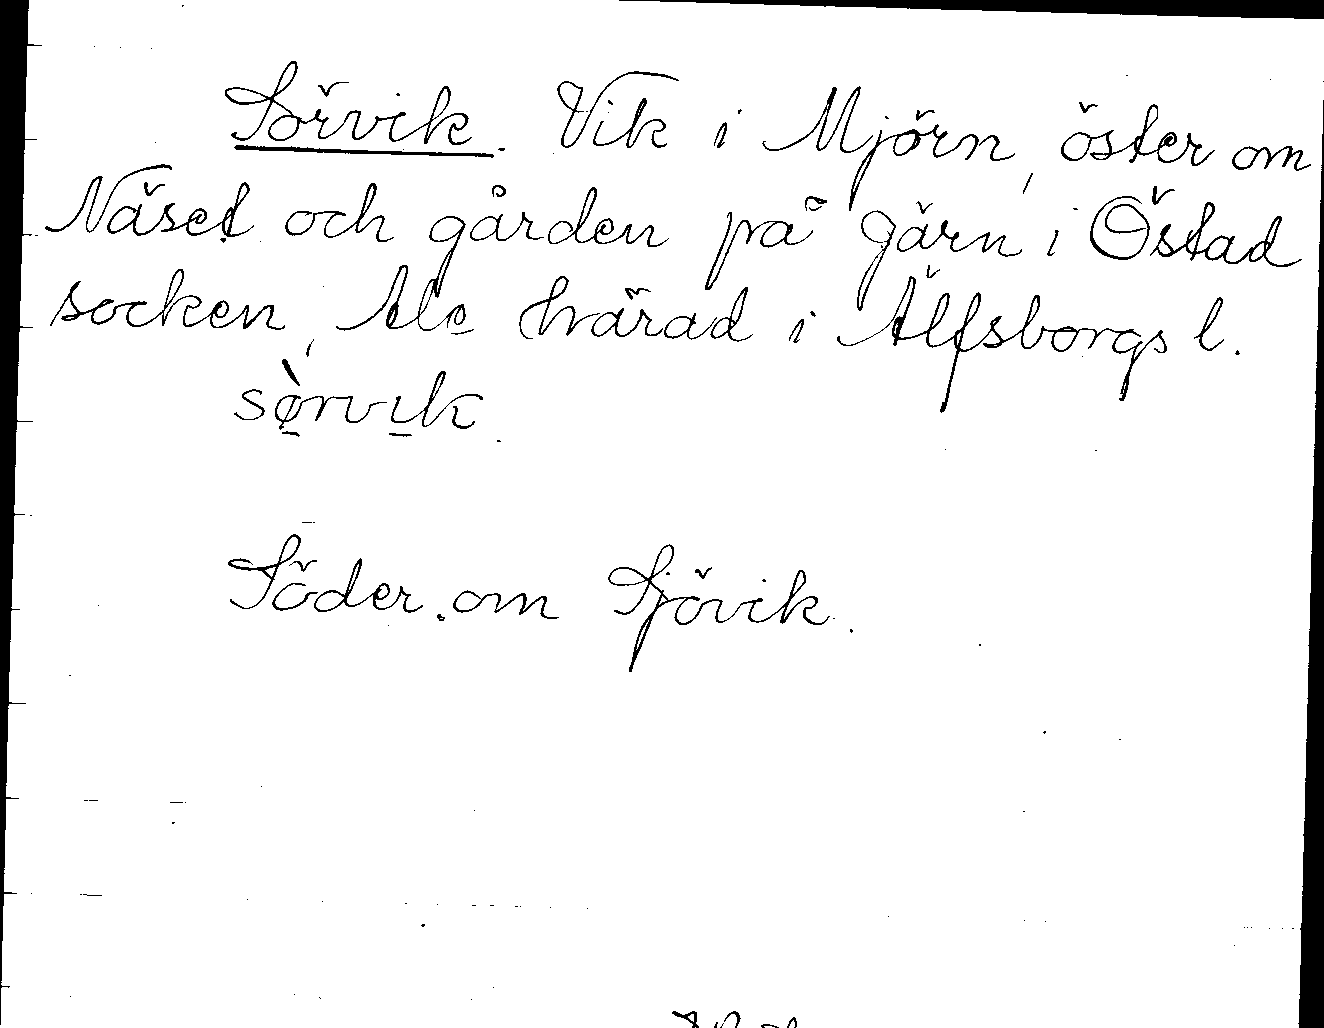 Sörvik. Vik i Mjörn, öster om
Näset och gården på Gärn i Östad
socken, Ale härad i Älfsborgs l.
sørvɪk.
Söder om Sjövik.